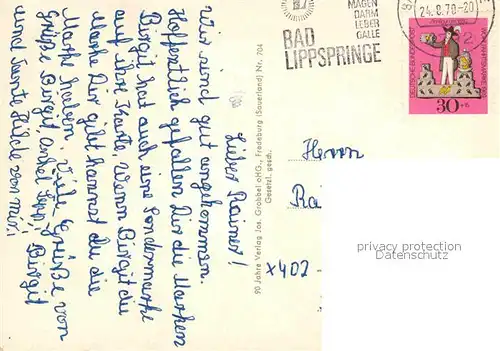 Lieber Rainer!
Wir sind gut angekommen.
Hoffentlich gefallen Dir die Marken
Birgit hat auch eine Sondermarke
auf ihre Karte. Wenn Birgit die
Marke Dir gibt kannst du die
Marke haben. Viele Grüße von
Grüße Birgit, Onkel Sepp, Birgit
und Tante Hilde von mir!
90 Jahre Verlag Jos. Grobbel oHG., Fredeburg (Sauerland) Nr. 704
Gesetzl. gesch.
MAGEN
DARM
LEBER
GALLE
BAD
LIPPSPRINGE
24.8.70-20
DEUTSCHE BUNDESPOST
WOHLFAHRTSMARKE 1969
30
Herrn
Rai
x402
privacy protection
Datenschutz